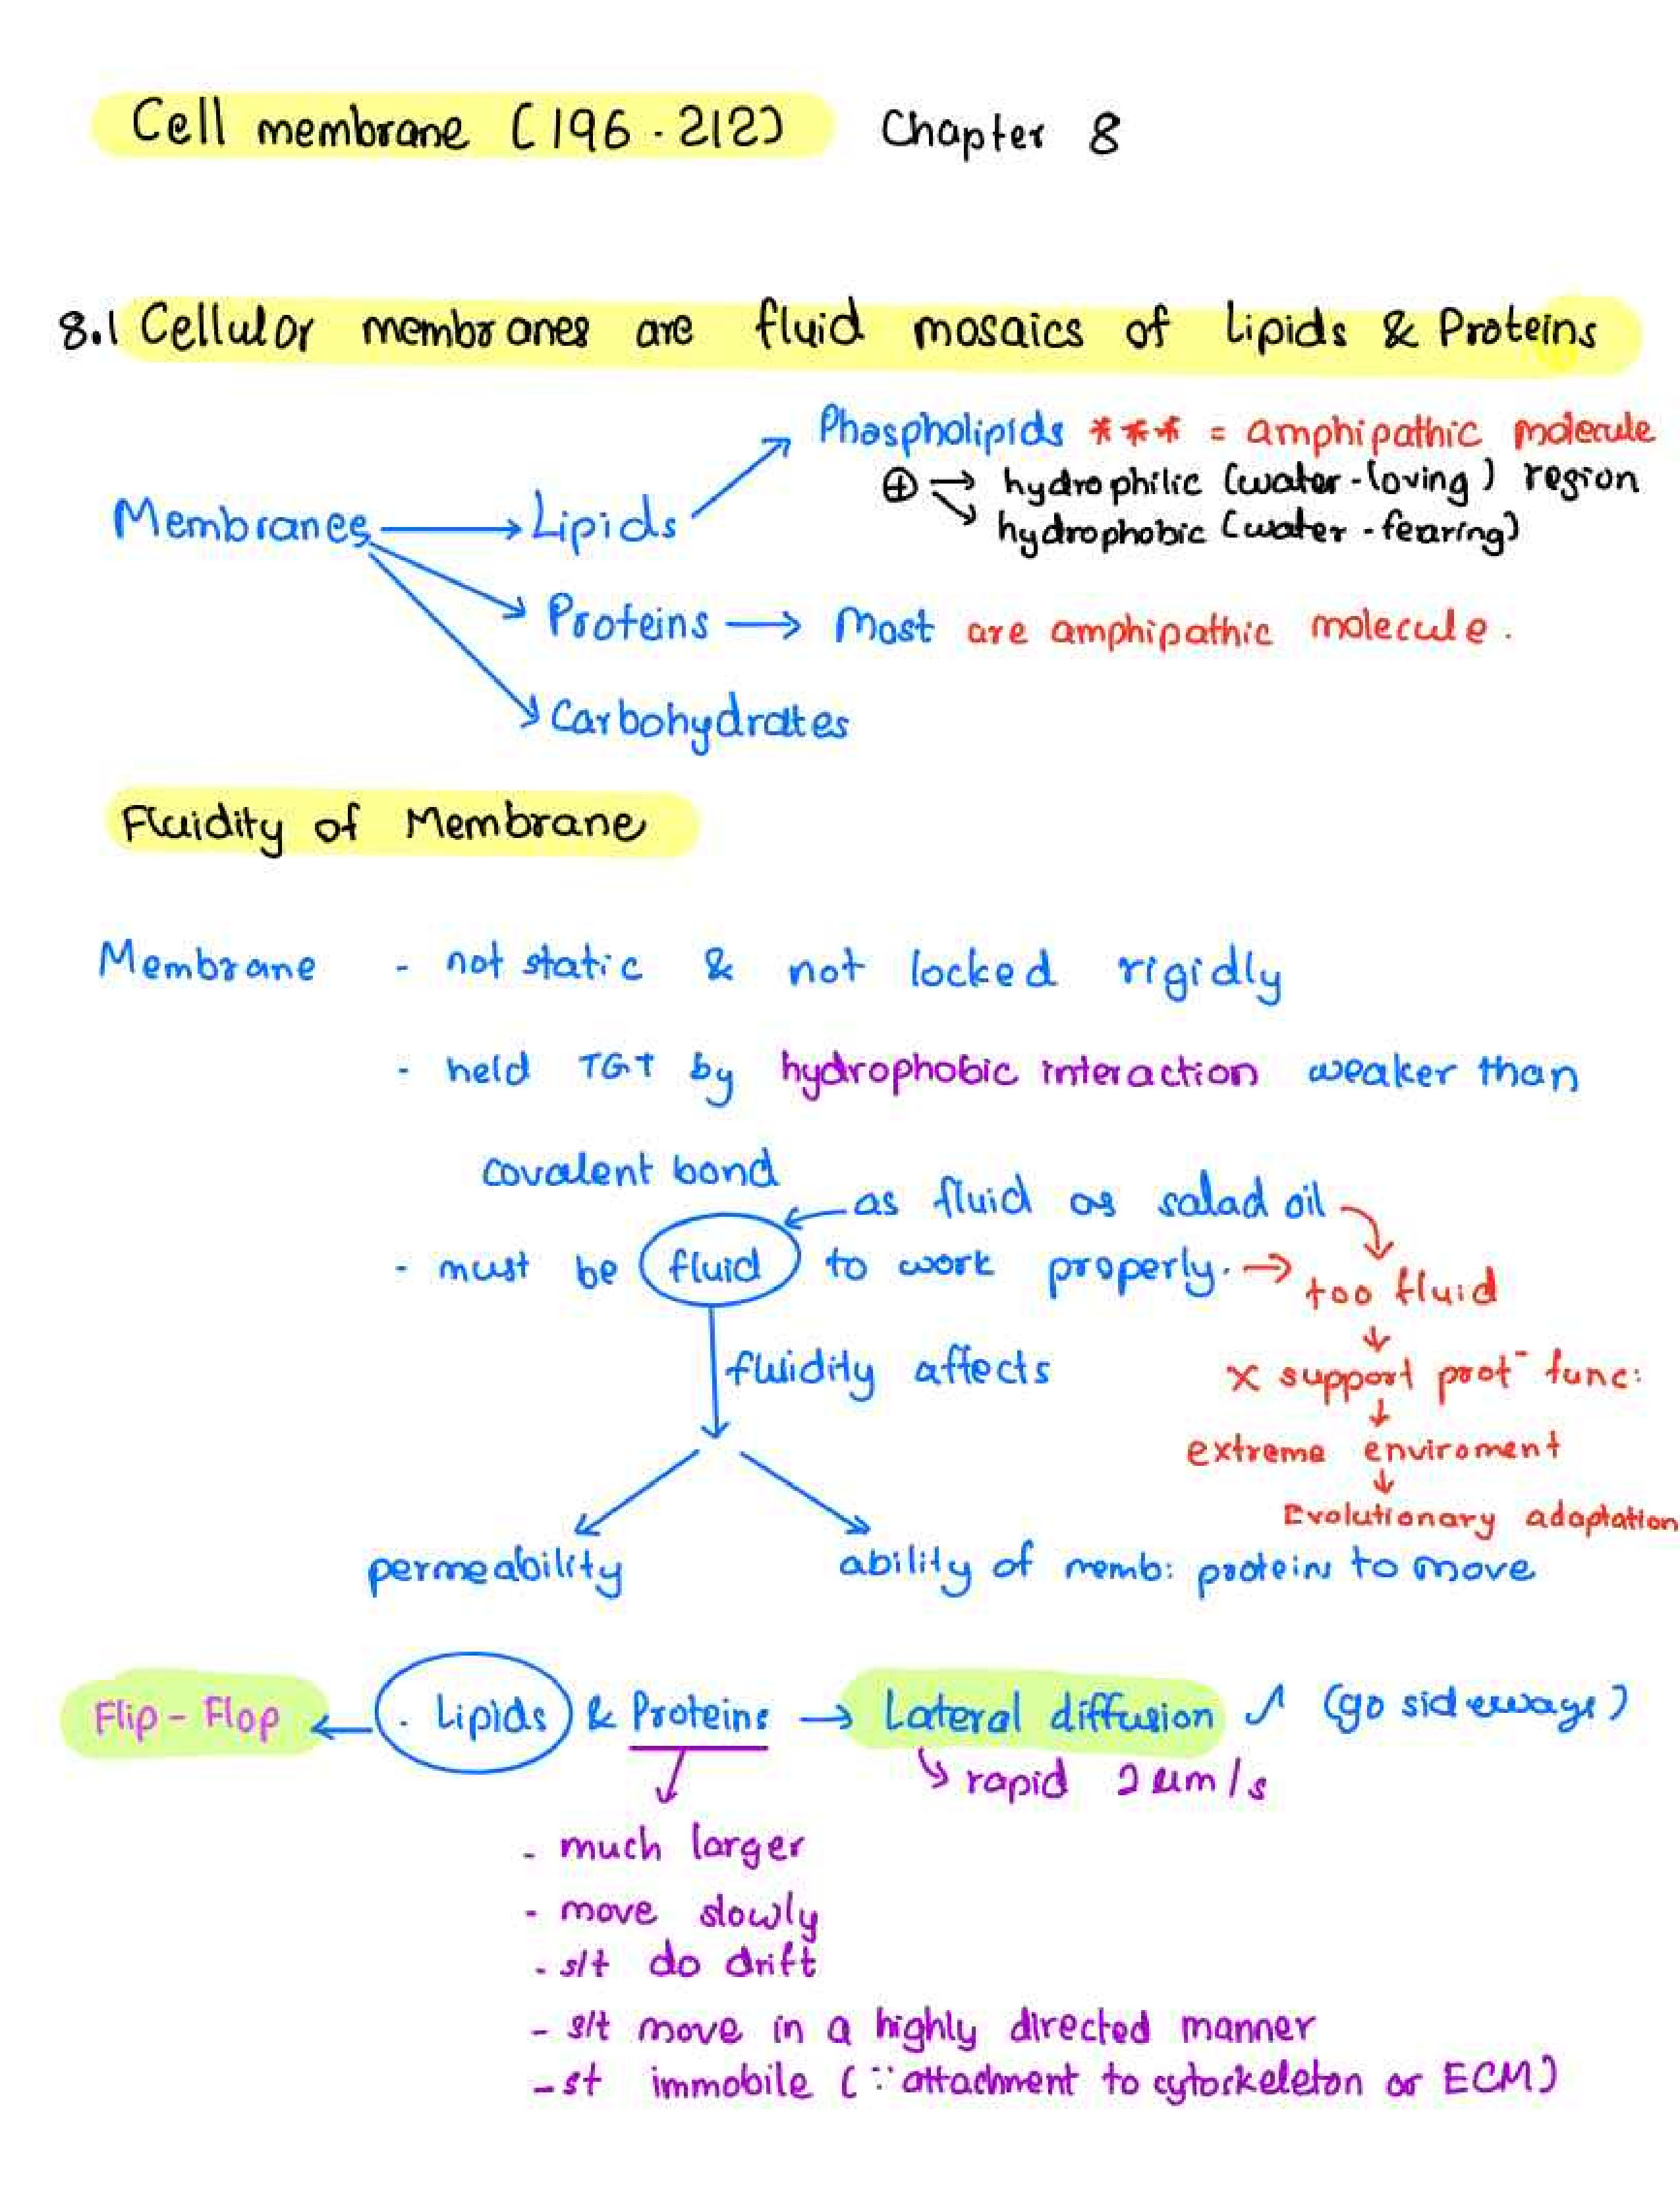 Cell membrane (196 - 212) Chapter 8
8.1 Cellular membranes are fluid mosaics of Lipids & Proteins
Phospholipids *** = amphipathic molecule
⊕ → hydrophilic (water-loving) region
↘ hydrophobic (water-fearing)
Membranes → Lipids
Proteins → Most are amphipathic molecule.
Carbohydrates
Fluidity of Membrane
Membrane - not static & not locked rigidly
- held TGT by hydrophobic interaction weaker than
covalent bond
as fluid as salad oil
- must be fluid to work properly. → too fluid
↓
fluidity affects
x support prot⁻ func:
↓
extreme enviroment
↓
Evolutionary adaptation
permeability
ability of memb: proteins to move
Flip - Flop ← . Lipids & Proteins → Lateral diffusion (go sideways)
rapid 2 um/s
- much larger
- move slowly
- s/t do drift
- s/t move in a highly directed manner
- st immobile (∵ attachment to cytoskeleton or ECM)